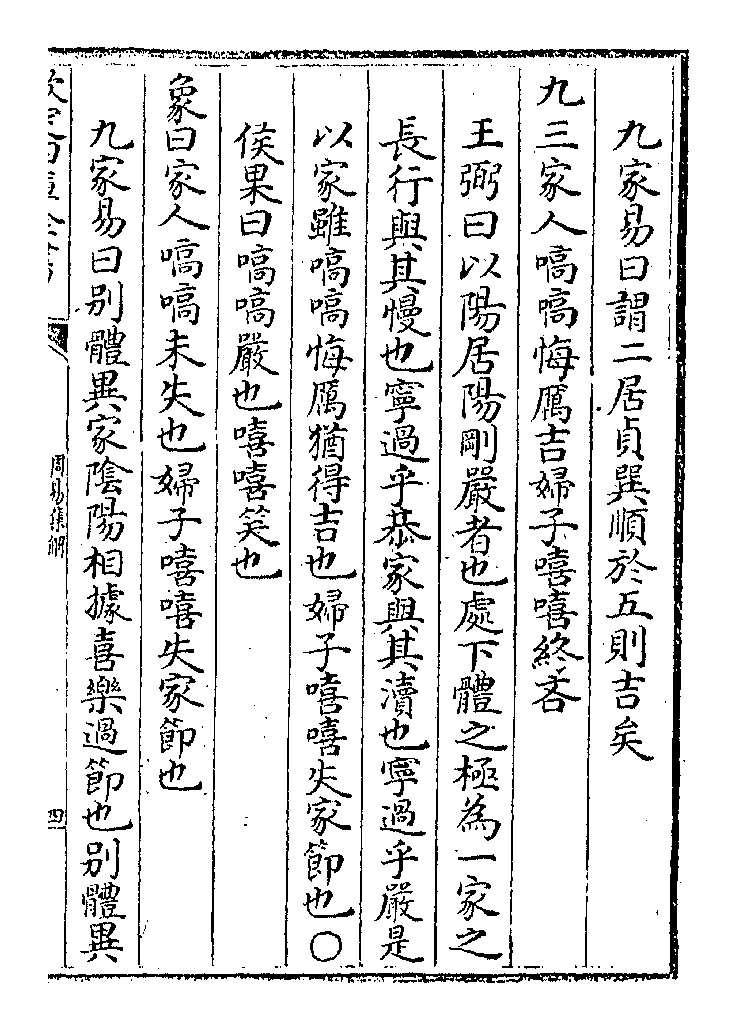 九家易曰謂二居貞巽順於五則吉矣
九三家人嗃嗃悔厲吉婦子嘻嘻終吝
王弼曰以陽居陽剛嚴者也處下體之極為一家之
長行與其慢也寧過乎恭家與其瀆也寧過乎嚴是
以家雖嗃嗃悔厲猶得吉也婦子嘻嘻失家節也〇
侯果曰嗃嗃嚴也嘻嘻笑也
象曰家人嗃嗃未失也婦子嘻嘻失家節也
九家易曰別體異家陰陽相據喜樂過節也別體異
欽定四庫全書
周易集解
四